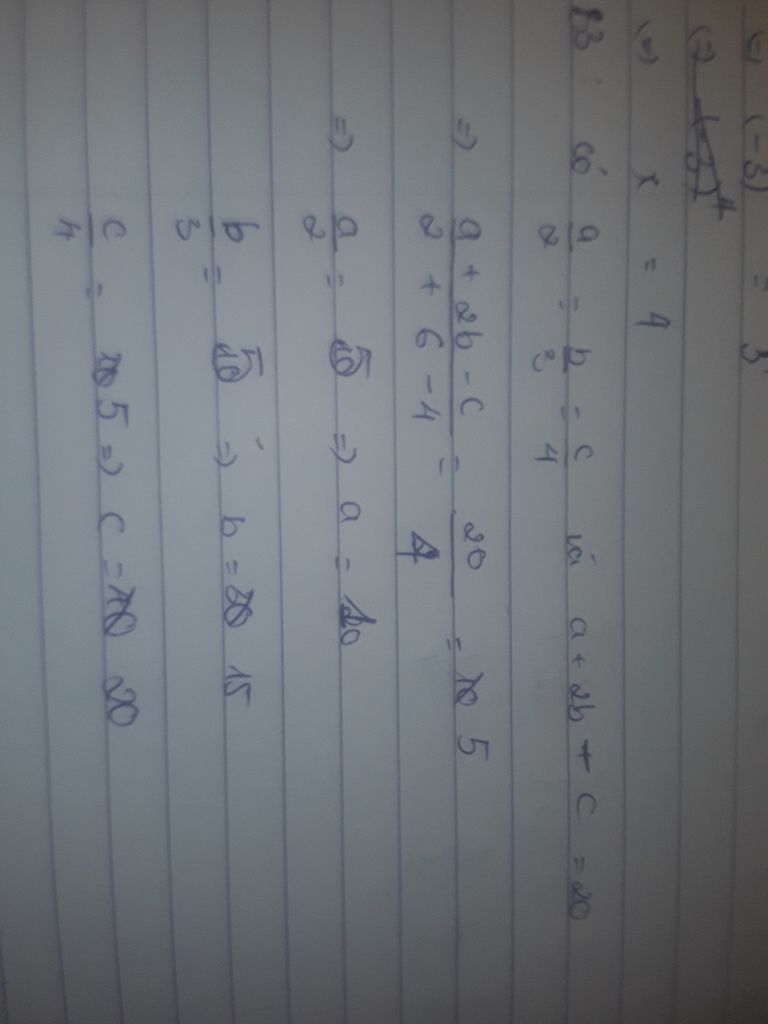 (-3) = 3
(=) x = 4
B3: có a/2 = b/3 = c/4 và a + 2b + c = 20
=> a + 2b - c / 2 + 6 - 4 = 20/4 = 5
=> a/2 = 5 => a = 10
b/3 = 5 => b = 15
c/4 = 5 => c = 20